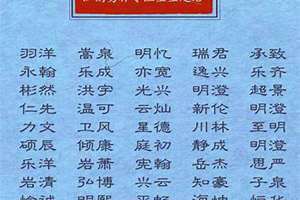 羽洋 嵩泉 明忆 瑞君 承致
永翰 乐成 亦宽 逸兴 乐齐
彬然 洪宇 光兴 明澄 超景
仁先 温可 云灿 新伦 明澄
力文 卫风 星德 川林 至明
硕辰 倾康 庭初 静成 明澄
乐洋 岩萧 宪翰 岳杰 思严
岩清 弘博 兴云 知豪 子泉